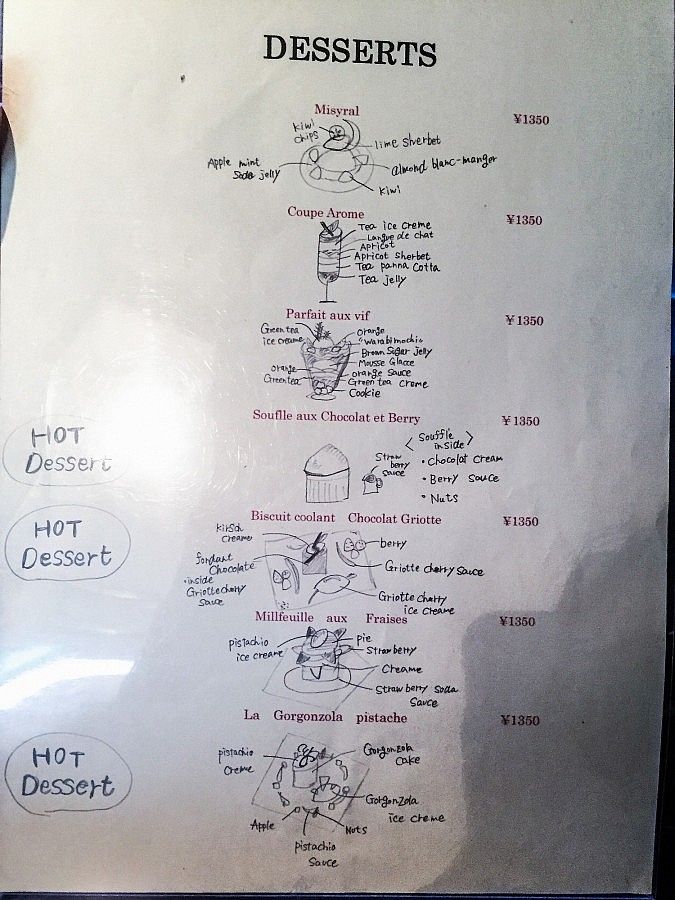 DESSERTS
Misyral ¥1350
kiwi
chips
lime sherbet
Apple mint
Soda jelly
almond blanc-manger
kiwi
Coupe Arome ¥1350
Tea ice creme
Langue de chat
Apricot
Apricot sherbet
Tea panna cotta
Tea jelly
Parfait aux vif ¥1350
Green tea
ice creame
orange
"warabimochi"
Brown Suger jelly
Mousse Glacce
orange
Greentea
orange sauce
Green tea creme
Cookie
Souflle aux Chocolat et Berry ¥1350
HOT
Dessert
Straw
berry
sauce
< Soufflé
inside >
・Chocolat cream
・Berry sauce
・Nuts
Biscuit coolant Chocolat Griotte ¥1350
HOT
Dessert
kirsch
creame
berry
fondant
Chocolate
・inside
Griottecherry
sauce
Griotte cherry sauce
Griotte cherry
ice creame
Millfeuille aux Fraises ¥1350
pistachio
ice creame
pie
Strawberry
Creame
Strawberry soda
Sauce
La Gorgonzola pistache ¥1350
HOT
Dessert
pistachio
Creme
Gorgonzola
cake
Gorgonzola
ice creme
Apple
Nuts
pistachio
Sauce